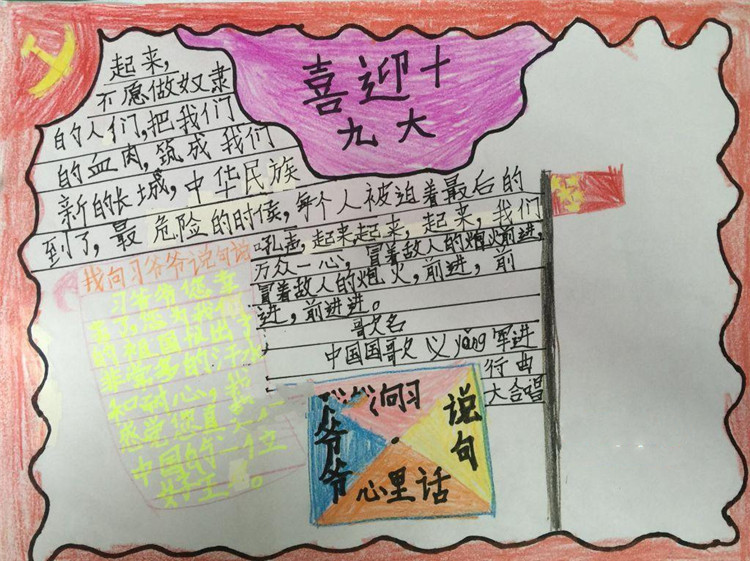 喜迎十
九大
起来,
不愿做奴隶
的人们,把我们
的血肉,筑成我们
新的长城,中华民族
到了,最危险的时候,每个人被迫着最后的
吼声,起来,起来,起来,我们
万众一心,冒着敌人的炮火前进,
冒着敌人的炮火,前进,前
进,前进进。
哥欠名
中国国哥欠 义yǒng军进
行曲
大合唱
我向习爷爷说句话
习爷爷您辛
苦了,您为我们
的祖国
的汗水
和耐心,我
感觉您真
中国的一位
向习
爷爷
说句
心里话